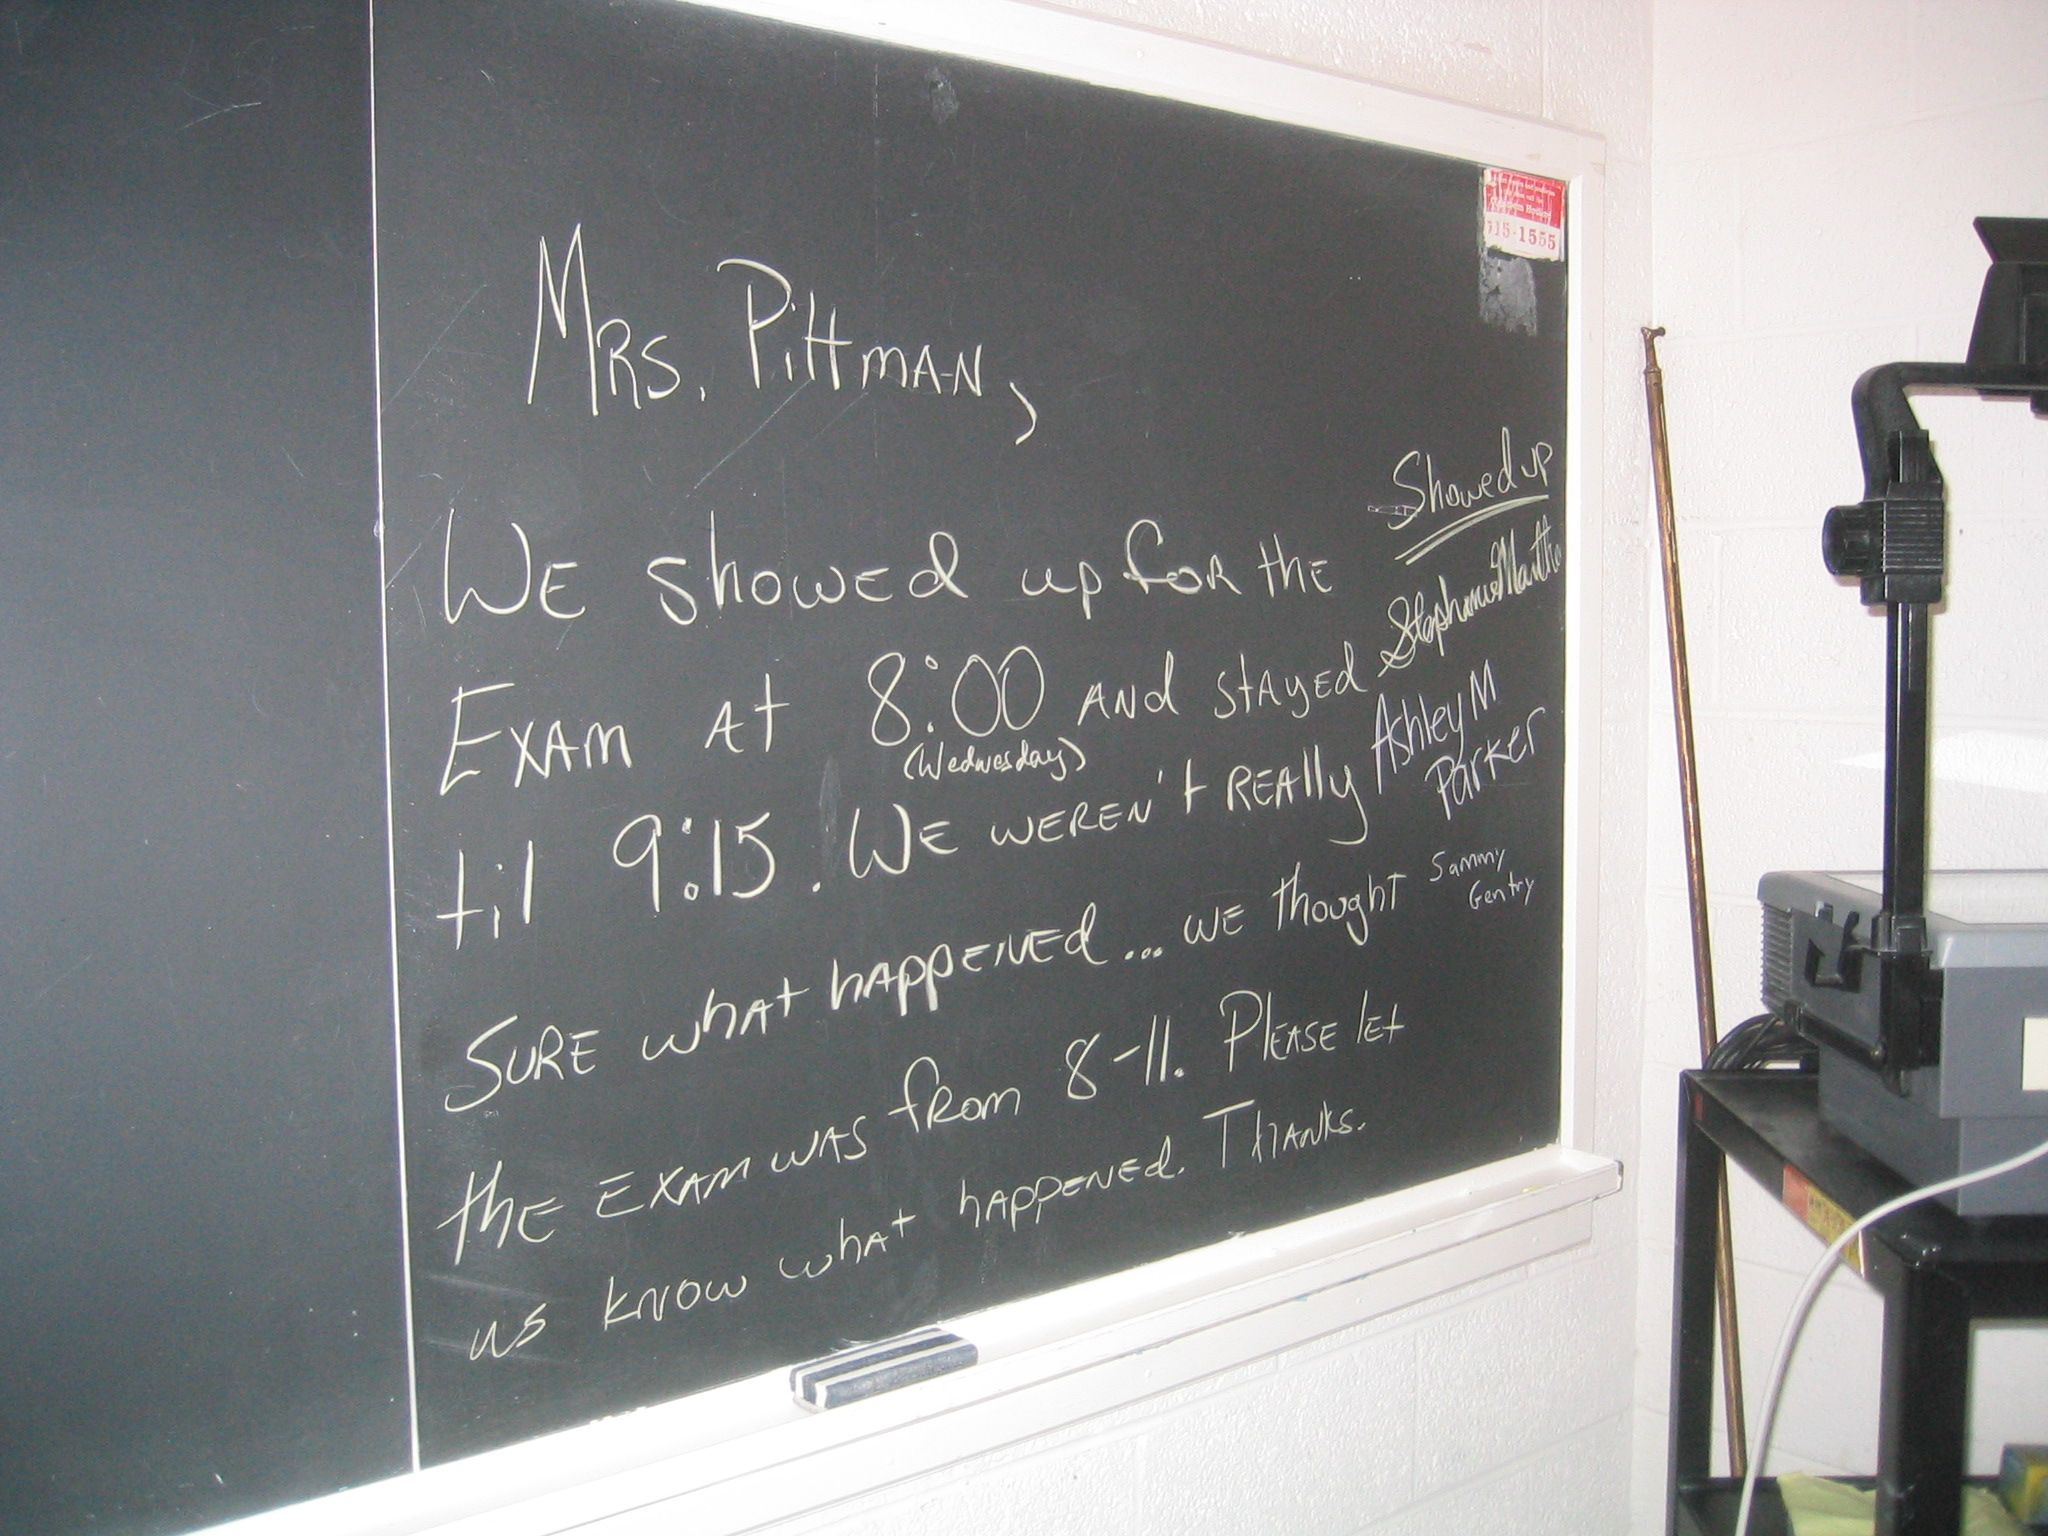 MRS. Pittman,
WE showed up for the
Exam at 8:00 and stayed
(Wednesday)
til 9:15. WE weren't really
Sure what happened... we thought
the exam was from 8-11. Please let
us know what happened. Thanks.
Showed up
Stephanie
Ashley M.
Parker
Sammy
Gentry
315-1555